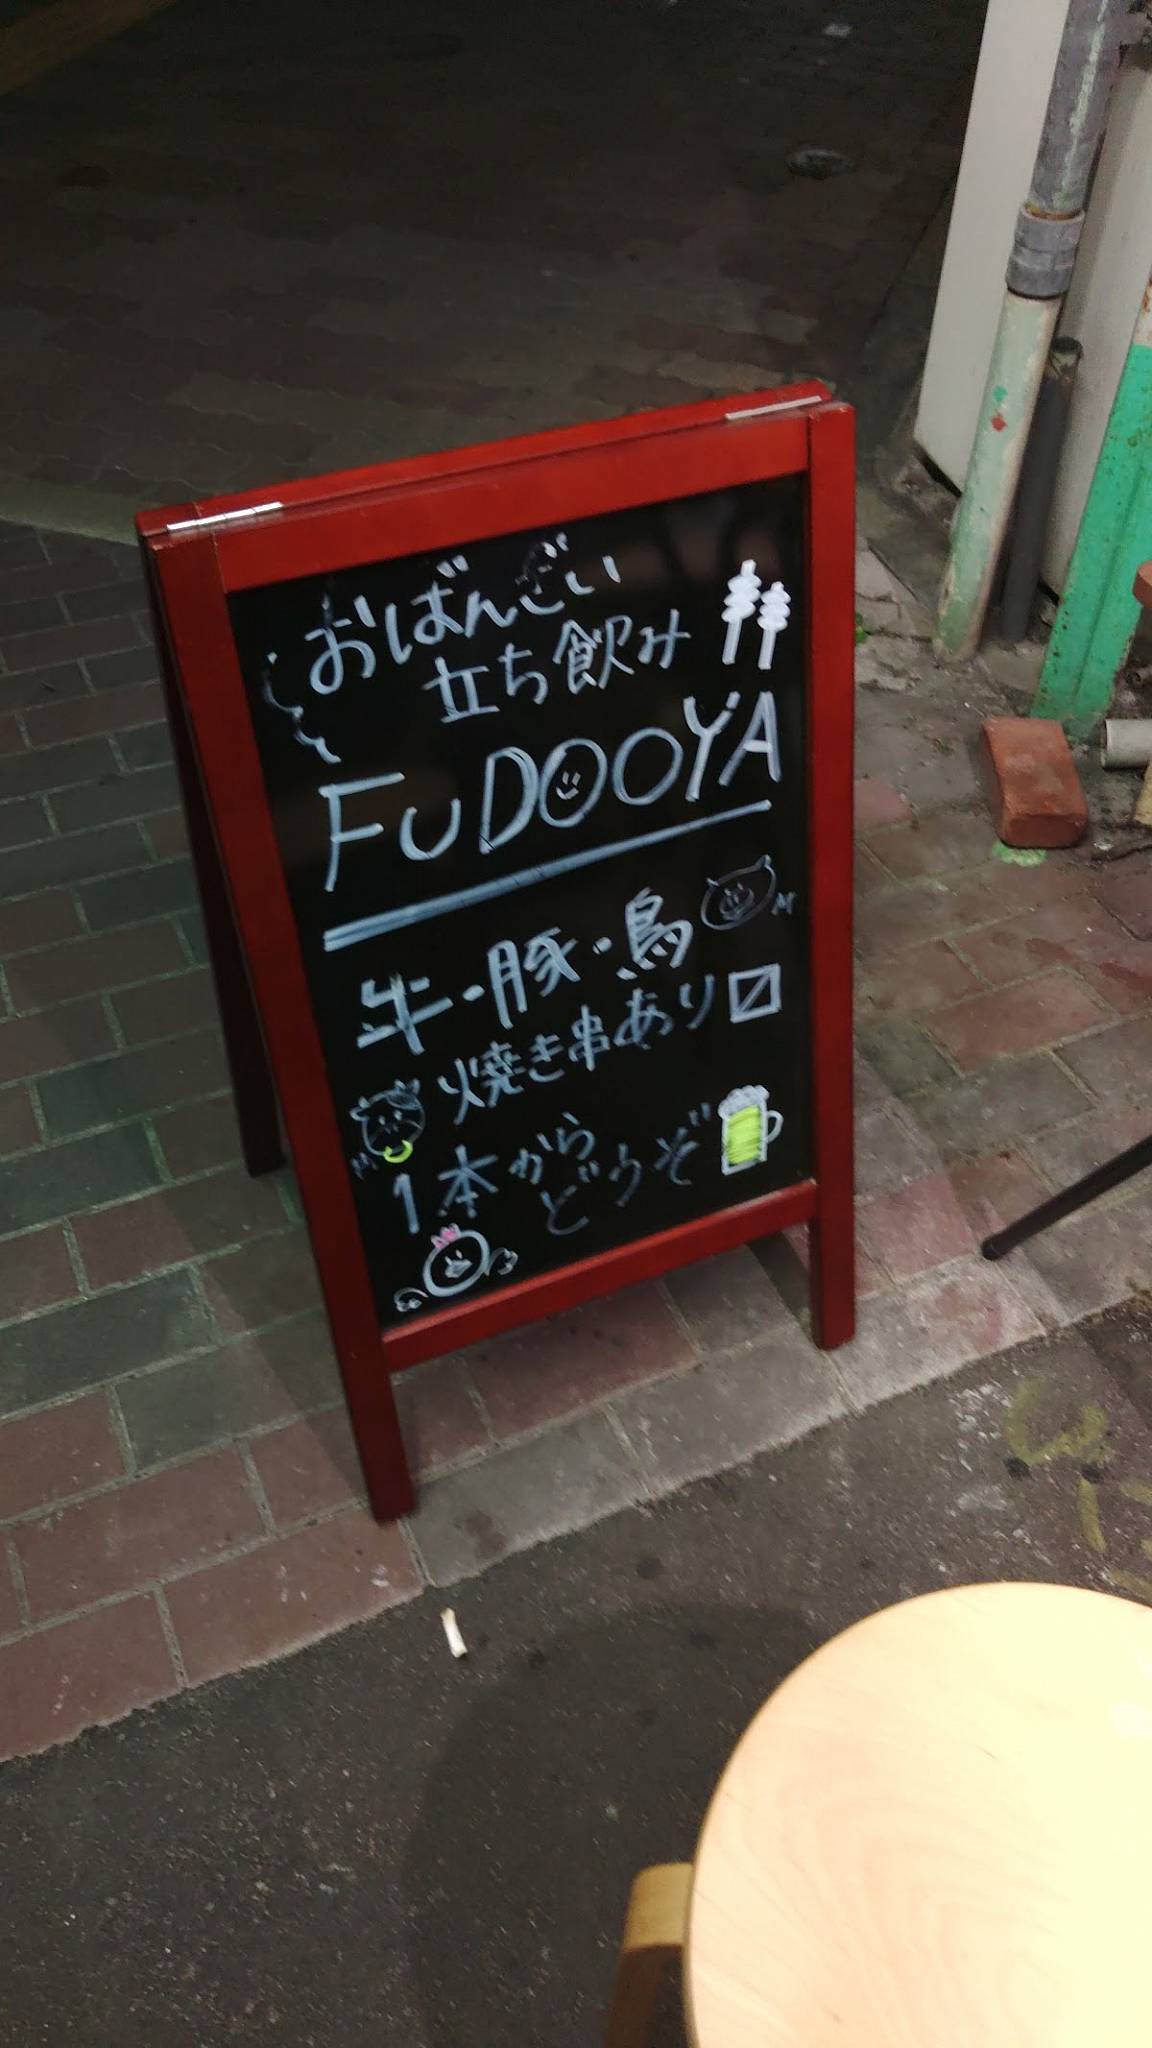 おばんざい
立ち飲み
FUDOOYA
牛・豚・鳥
焼き串あり〼
1本から
どうぞ